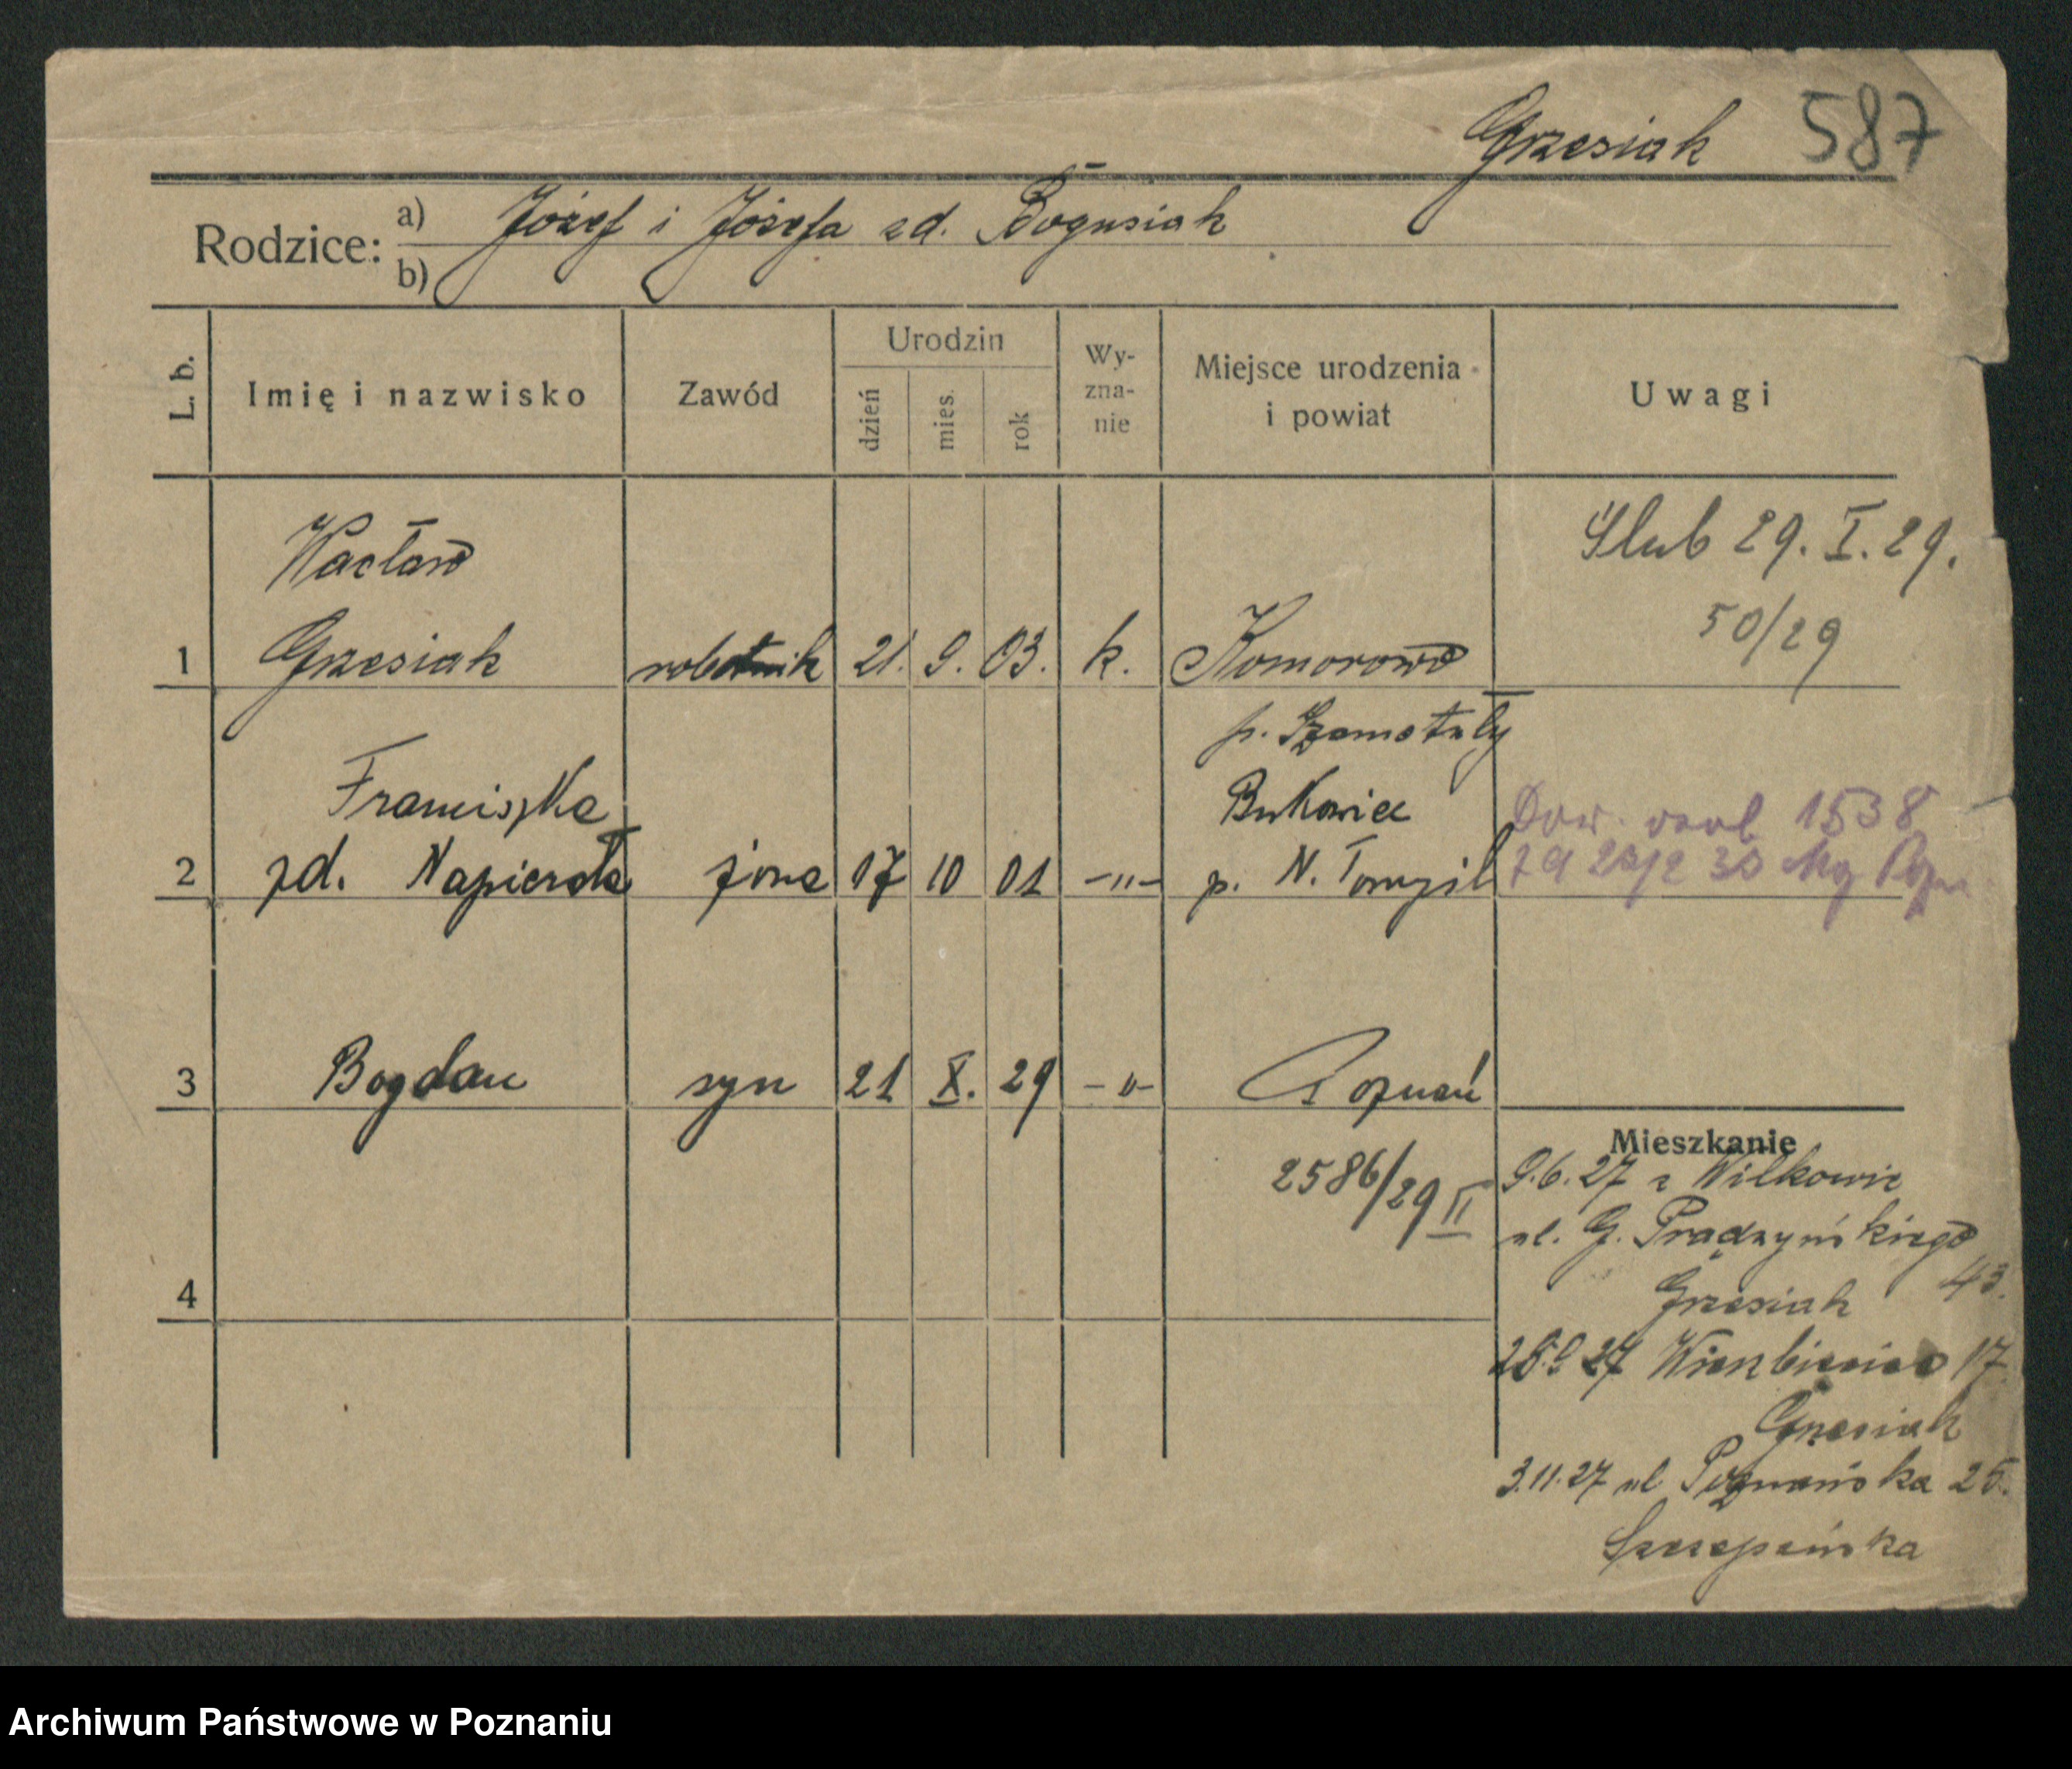 Grzesiak 587
Rodzice: a) Józef i Józefa zd. Bogusiak
b)
L. b. Imię i nazwisko Zawód Urodzin dzień mies. rok Wy-zna-nie Miejsce urodzenia i powiat Uwagi
Wacław
1 Grzesiak robotnik 21. 9. 03. k. Komorowo
Ślub 29. I. 29.
50/29
p. Szamotuły
Franciszka
Bukowiec
2 zd. Napierała żona 17 10 01 -"- p. N. Tomyśl
Dow. osob 1538
3 Bogdan syn 21 X. 29 -"- Poznań
2586/29 II
4
Mieszkanie
9.6.27 z Wilkowic
ul. G. Prądzyńskiego
43.
Grzesiak
27 Wierzbięcice 17
Grzesiak
3.11.27 ul Poznańska 25.
Szczepańska
Archiwum Państwowe w Poznaniu